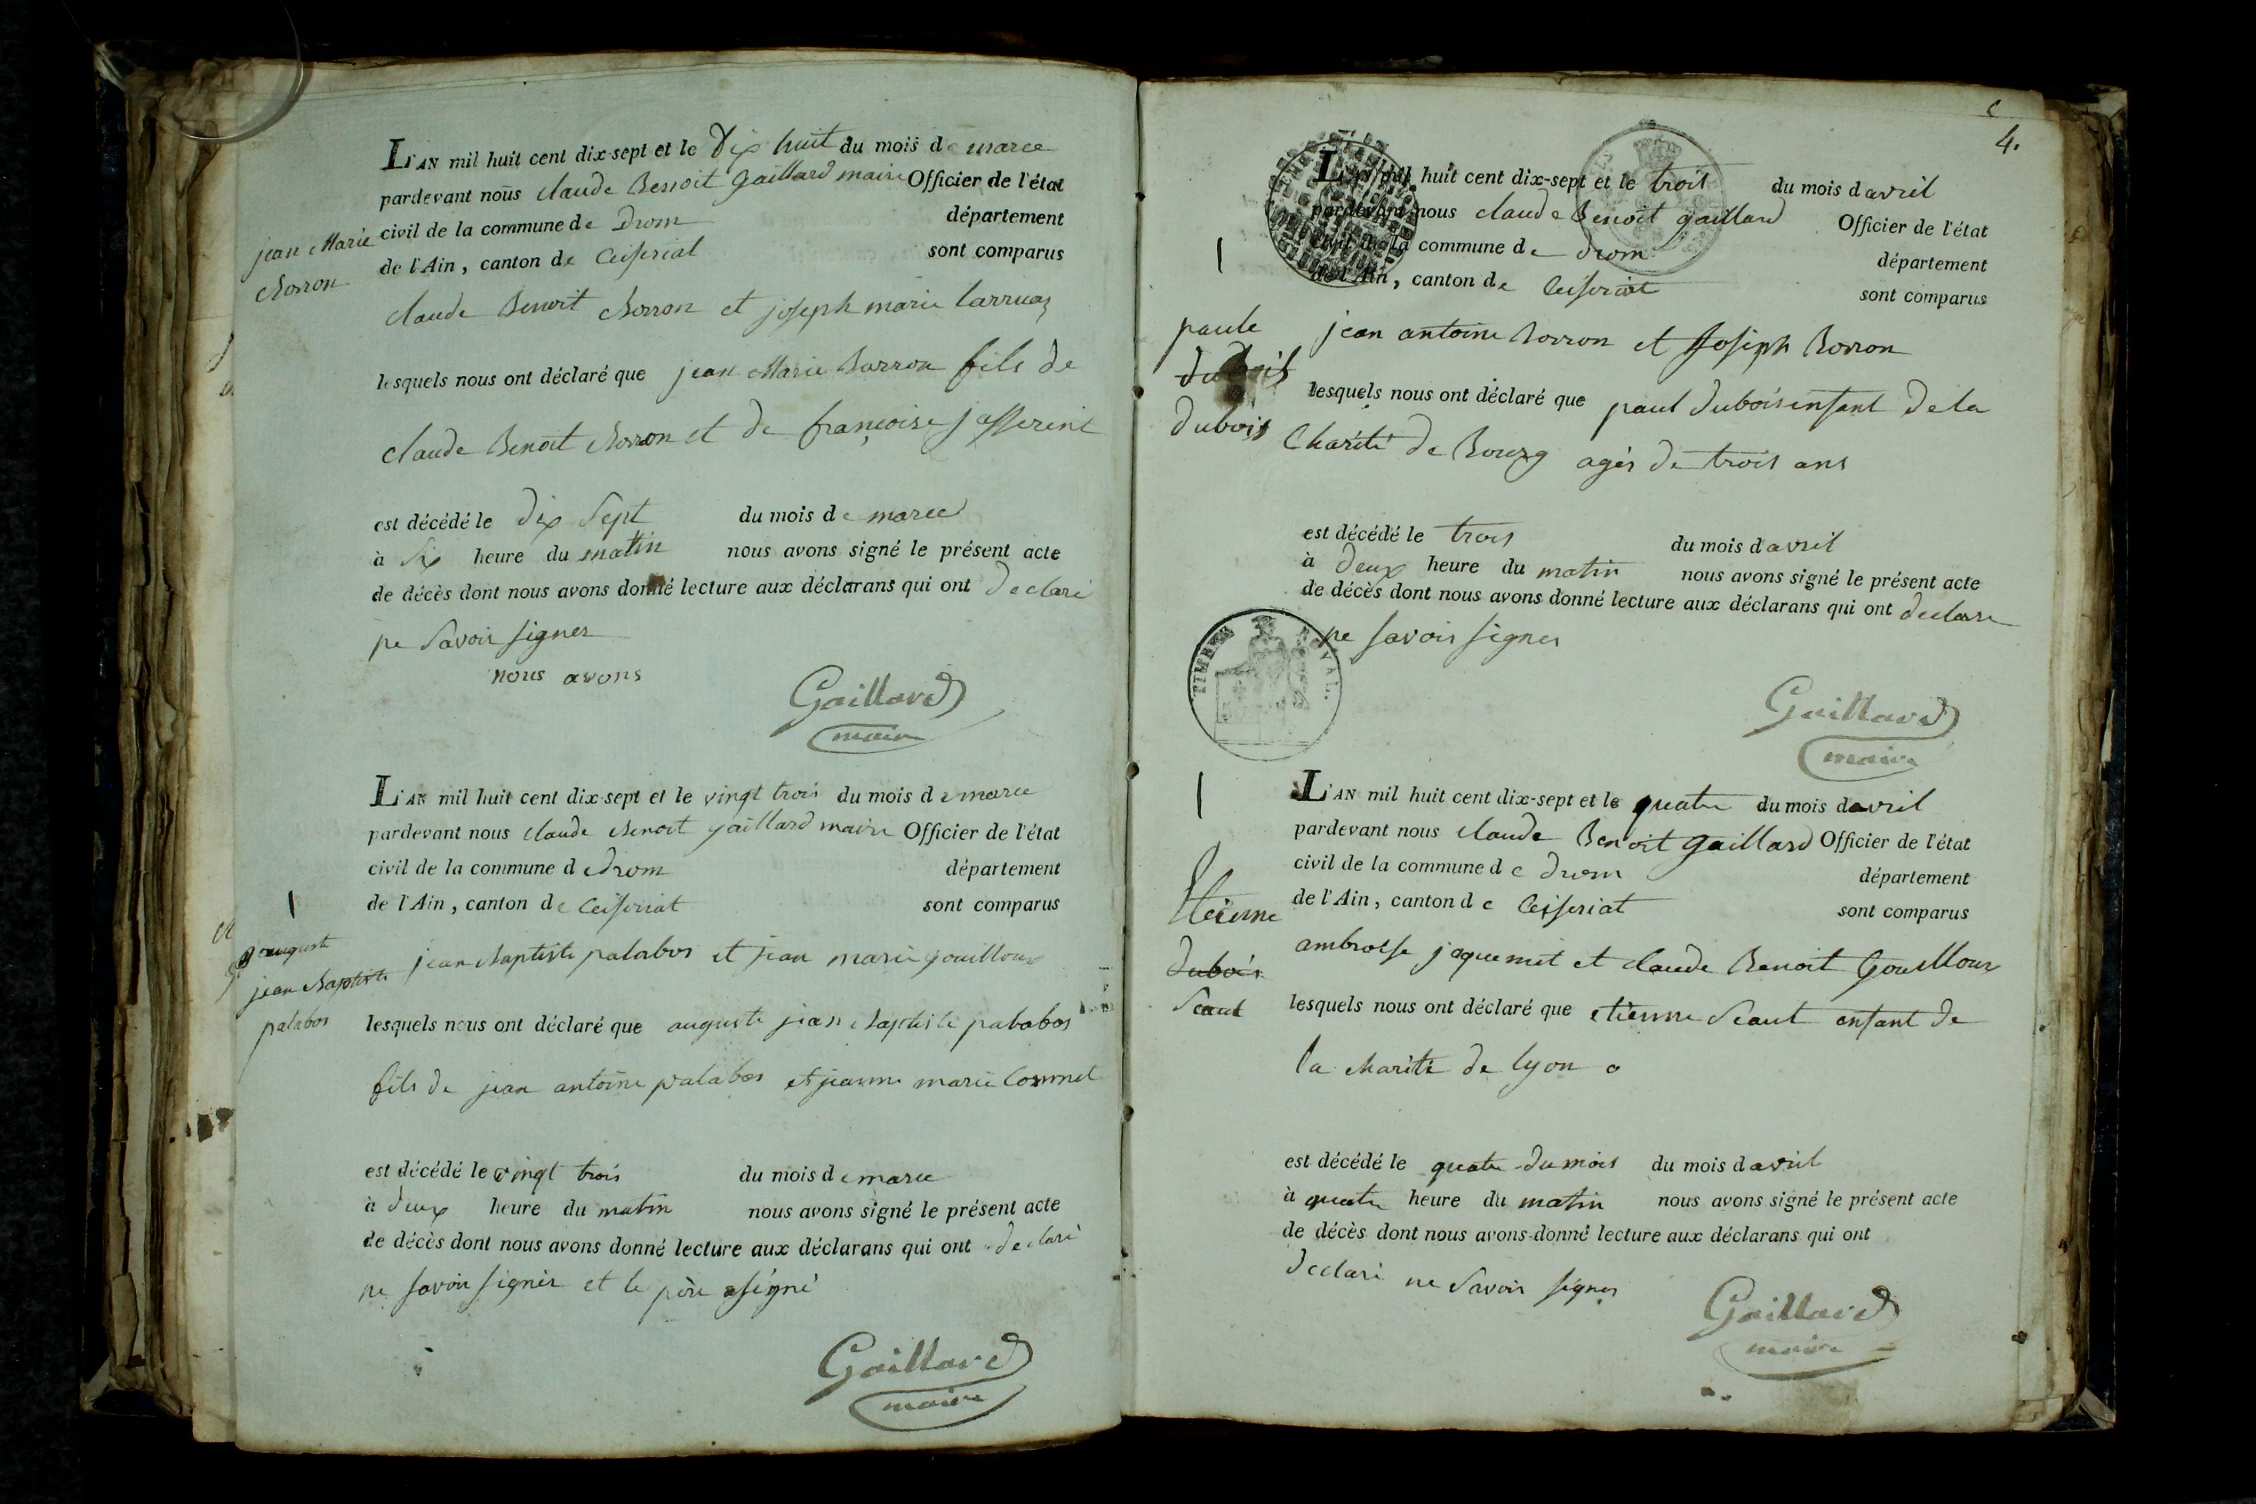 L'AN mil huit cent dix-sept et le Dix huit du mois de marce
pardevant nous claude Benoit Gaillard maire Officier de l'état
civil de la commune de Drom département
de l'Ain, canton de Ceiseriat sont comparus
jean Marie
Borron
claude Benoit Borron et joseph marie
lesquels nous ont déclaré que jean Marie Borron fils de
claude Benoit Borron et de françoise
est décédé le dix Sept du mois de marce
à Six heure du matin nous avons signé le présent acte
de décès dont nous avons donné lecture aux déclarans qui ont declaré
ne Savoir signer
nous avons
Gaillard
maire
L'AN mil huit cent dix-sept et le vingt trois du mois de marce
pardevant nous claude Benoit gaillard maire Officier de l'état
civil de la commune de Drom département
de l'Ain, canton de Ceiseriat sont comparus
1
auguste
jean Baptiste
palabos
jean Baptiste palabos et jean marie gouilloux
lesquels nous ont déclaré que auguste jean Baptiste palabos
fils de jean antoine palabos et jeanne marie
est décédé le vingt trois du mois de marce
à deux heure du matin nous avons signé le présent acte
de décès dont nous avons donné lecture aux déclarans qui ont declaré
ne savoir signer et le père a signé
Gaillard
maire
4.
L'AN mil huit cent dix-sept et le trois du mois davril
pardevant nous claude Benoit gaillard Officier de l'état
civil de la commune de drom département
de l'Ain, canton de Ceiseriat sont comparus
1
paule
dubois
dubois
jean antoine Borron et Joseph Borron
lesquels nous ont déclaré que paul dubois enfant de la
Charité de Bourg agés de trois ans
est décédé le trois du mois davril
à deux heure du matin nous avons signé le présent acte
de décès dont nous avons donné lecture aux déclarans qui ont declare
ne savoir signer
TIMBRE ROYAL.
Gaillard
maire
1
L'AN mil huit cent dix-sept et le quatre du mois davril
pardevant nous claude Benoit gaillard Officier de l'état
civil de la commune de drom département
de l'Ain, canton de Ceiseriat sont comparus
Etienne
dubois
Scaut
ambroise jaquemet et claude Benoit Gouilloux
lesquels nous ont déclaré que etienne Scaut enfant de
la charité de lyon
est décédé le quatre du mois du mois davril
à quatre heure du matin nous avons signé le présent acte
de décès dont nous avons donné lecture aux déclarans qui ont
declaré ne Savoir signer
Gaillard
maire